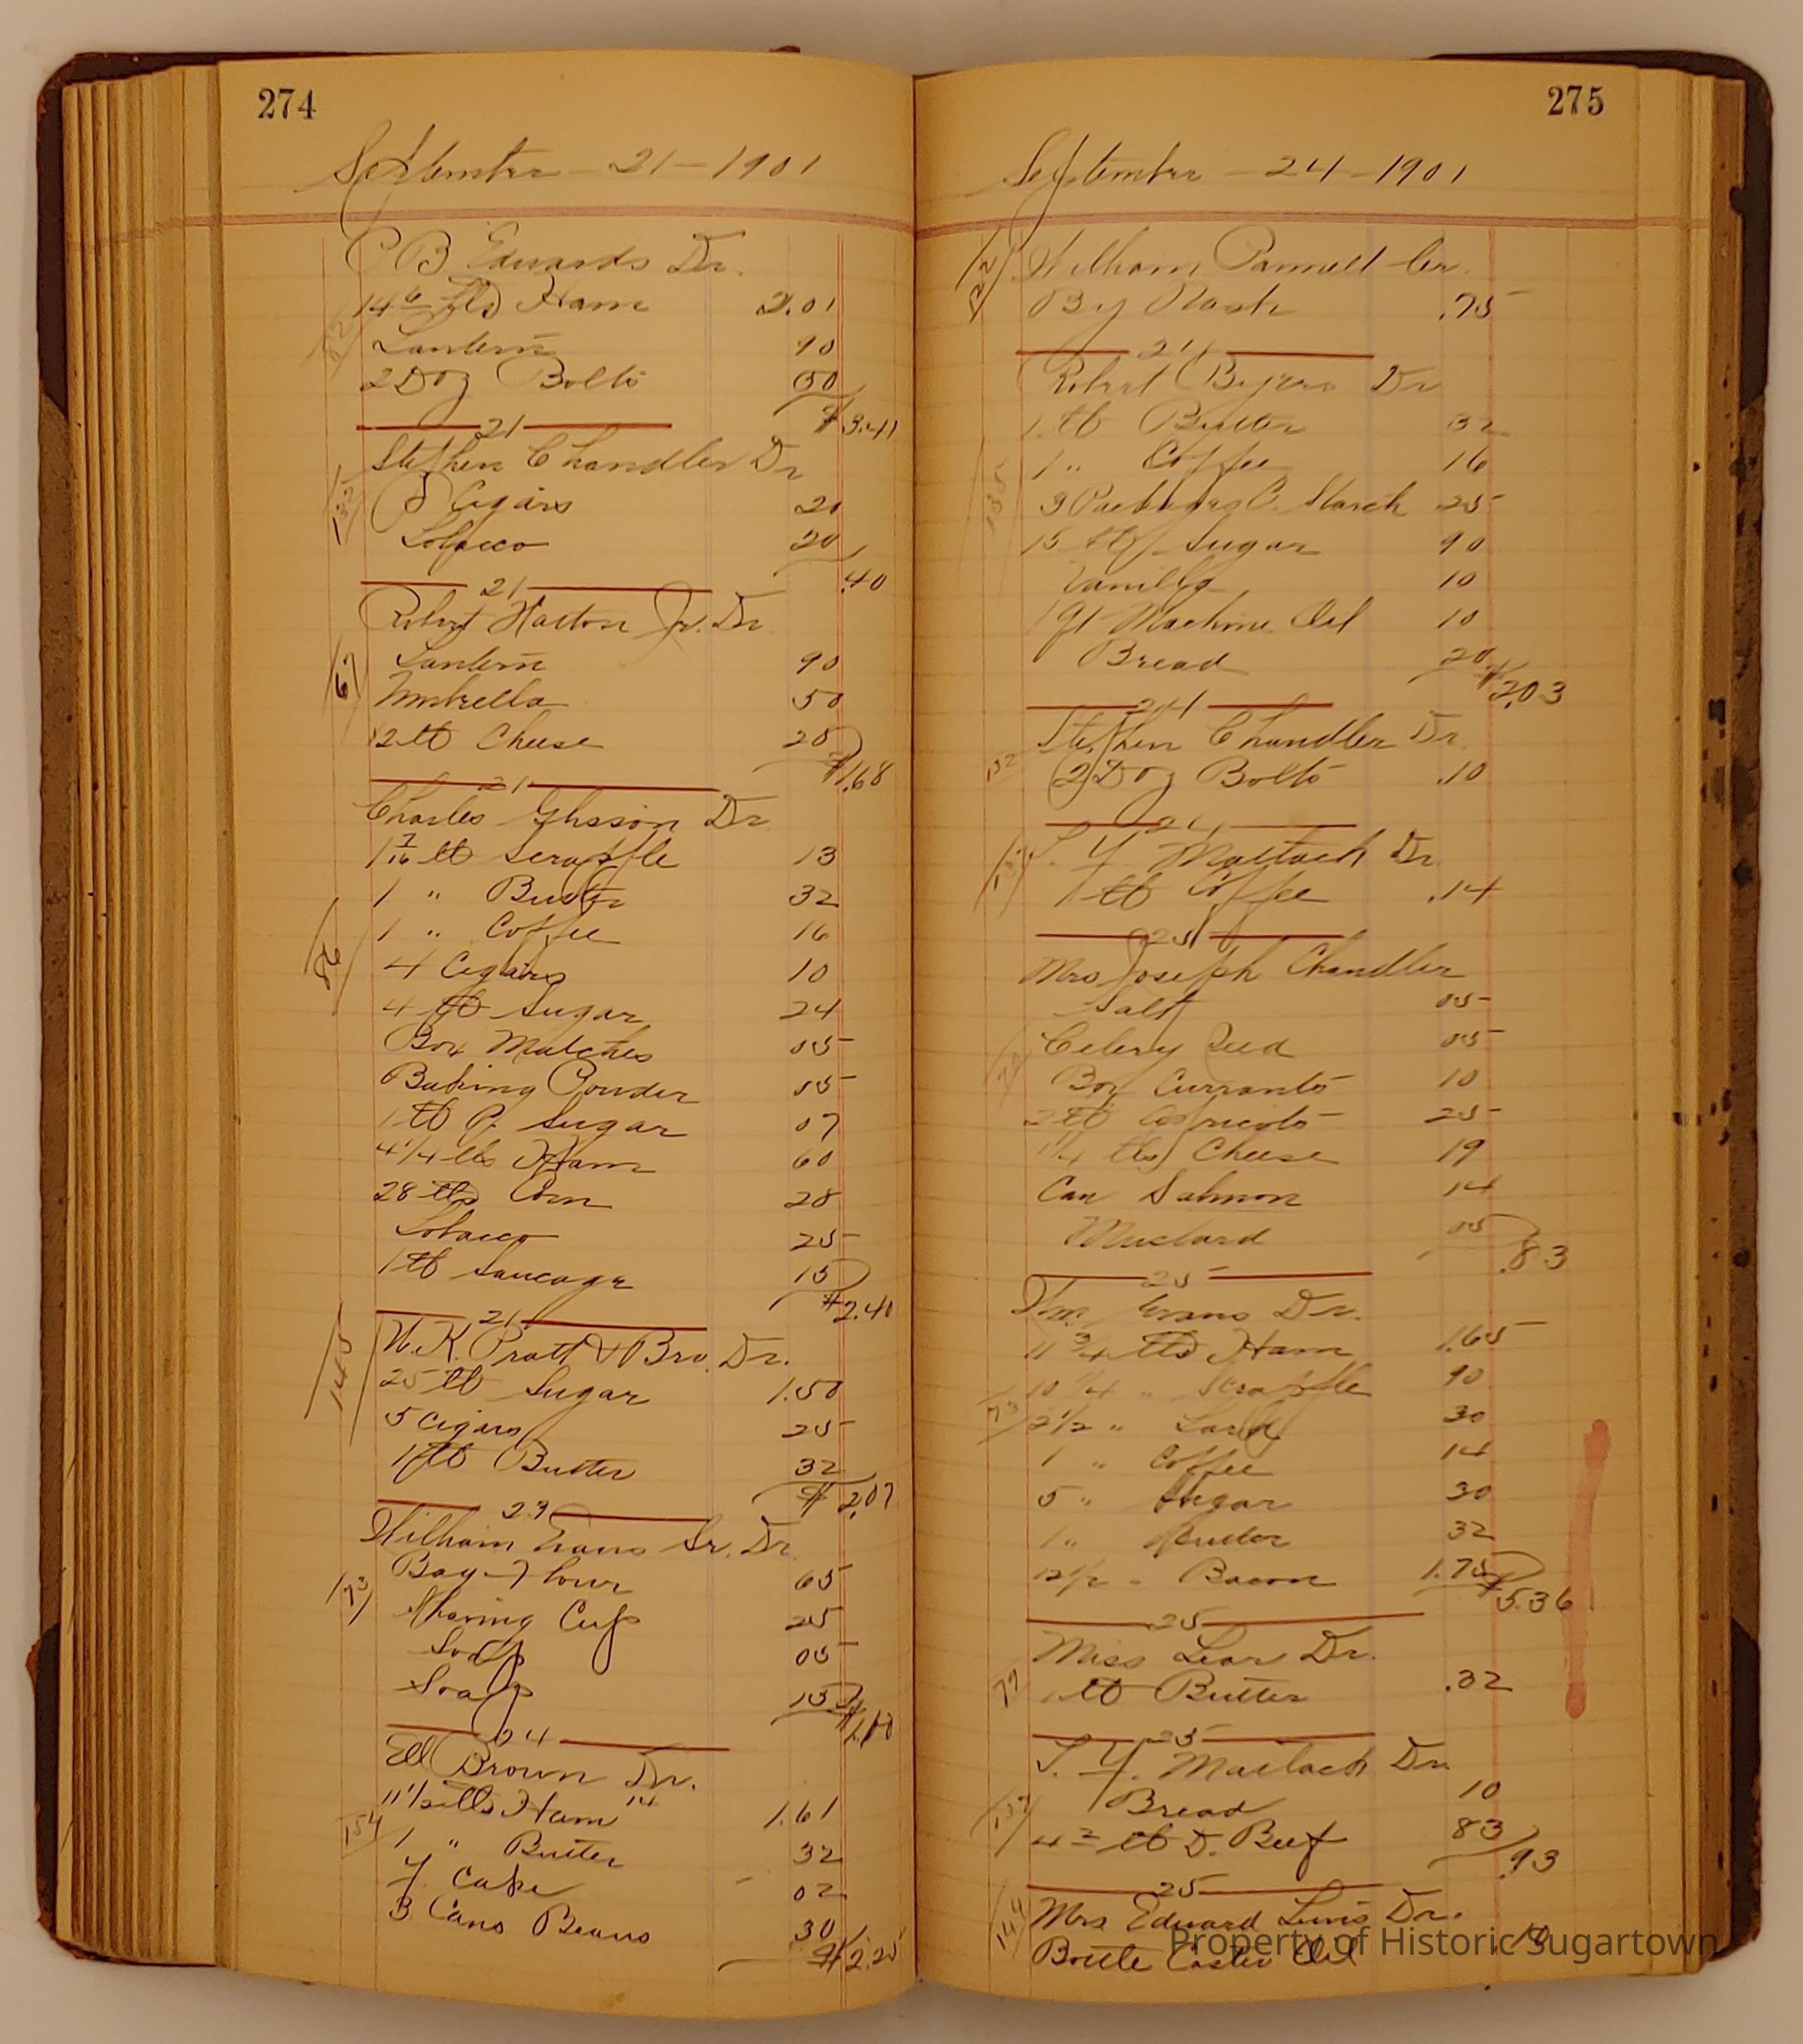 274
September - 21 - 1901
C B Edwards Dr.
14 6 lbs Ham 2.01
Lantern 90
2 Doz Bolts 50
$3.41
21
132
Stephen Chandler Dr
8 Cigars 20
Tobacco 20
.40
21
Robert Hatton Jr. Dr
67
Lantern 90
Umbrella 50
2 lb Cheese 28
$1.68
21
Charles Dr
1 7/16 lb Scrapple 13
1 " Butter 32
1 " Coffee 16
86
4 Cigars 10
4 lb Sugar 24
Box Matches 05
Baking Powder 05
1 lb P. Sugar 07
4 1/4 lbs Ham 60
28 lbs Corn 28
Tobacco 25
1 lb Saucage 15
$2.40
21
145
N. K. Pratt & Bro. Dr.
25 lb Sugar 1.50
5 Cigars 25
1 lb Butter 32
$2.07
23
William Evans Sr. Dr.
73
Bag Flour 65
Shaving Cup 25
Soap 05
Soap 15
$1.10
24
Ell Brown Dr.
11 1/2 lbs Ham 14 1.61
154
1 " Butter 32
Y. Cake 02
3 Cans Beans 30
$2.25
275
September - 24 - 1901
William Pannell Cr.
By Cash .75
24
Robert Byers Dr
1 lb Butter 32
1 " Coffee 16
155
3 Packages C. Starch 25
15 lb Sugar 90
Vanilla 10
1 qt Machine Oil 10
Bread 20
$2.03
24
Stephen Chandler Dr.
132
2 Doz Bolts .10
24
137
T. Y. Matlack Dr.
1 lb Coffee .14
25
Mrs Joseph Chandler
Salt 05
Celery Seed 05
Box Currants 10
2 lb Apricots 25
1 1/4 lbs Cheese 19
Can Salmon 14
Mustard 05
.83
25
Wm. Evans Dr.
11 3/4 lbs Ham 1.65
10 1/4 " Scrapple 90
73
2 1/2 " Lard 30
1 " Coffee 14
5 " Sugar 30
1 " Butter 32
12 1/2 " Bacon 1.75
$5.36
25
Miss Lear Dr.
77
1 lb Butter .32
25
T. Y. Matlack Dr.
137
Bread 10
4 2 lb D. Beef 83
.93
25
144
Mrs Edward Lewis Dr.
Bottle Castor Oil .10
Property of Historic Sugartown